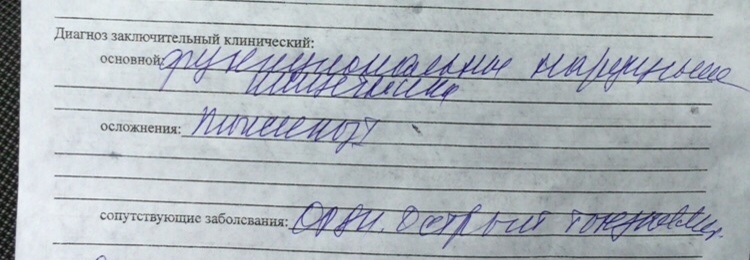 Диагноз заключительный клинический:
основной: функциональные нарушение
кишечника
осложнения:
сопутствующие заболевания: ОРВИ. Острый тонзиллит.